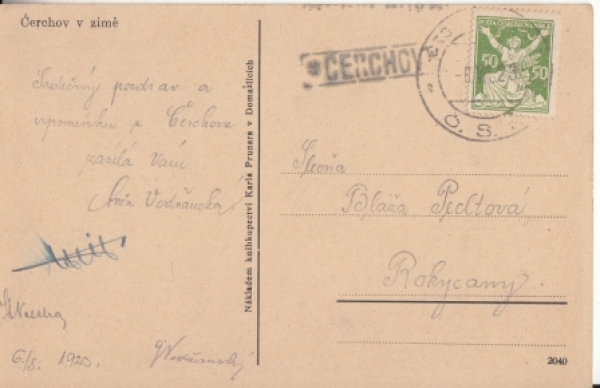 Čerchov v zimě
Srdečný pozdrav a
vzpomínku z Čerchova
zasílá Vám
Vodňanská
6/8. 1923.
Nákladem knihkupectví Karla Prunara v Domažlicích
ČERCHOV
POŠTA ČESKOSLOVENSKÁ
50 50
Č. S.
Slečna
Blaža Pedltová
Rokycany
2040